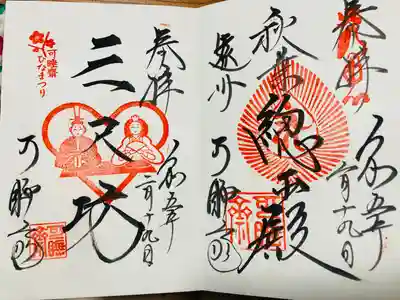 奉拝
令和五年
二月十九日
秋葉
總本殿
遠州
可睡斎
奉拝
令和五年
二月十九日
三尺坊
可睡齋
ひなまつり
可睡斎